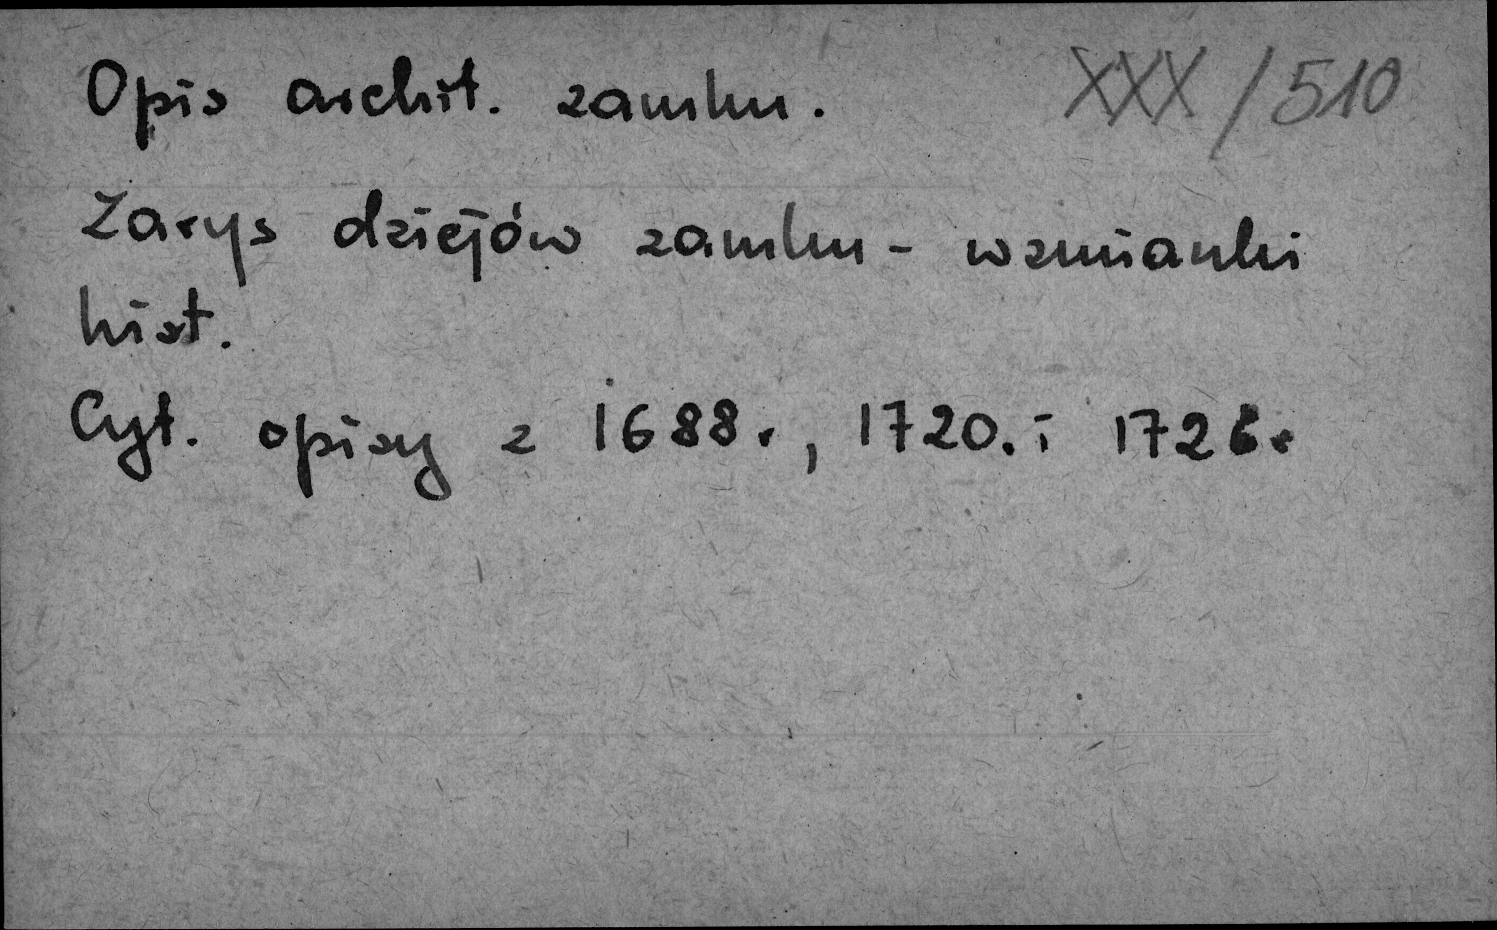 Opis archit. zamku. XXX/510
Zarys dziejów zamku - wzmianki
hist.
Cyt. opisy z 1688r, 1720. i